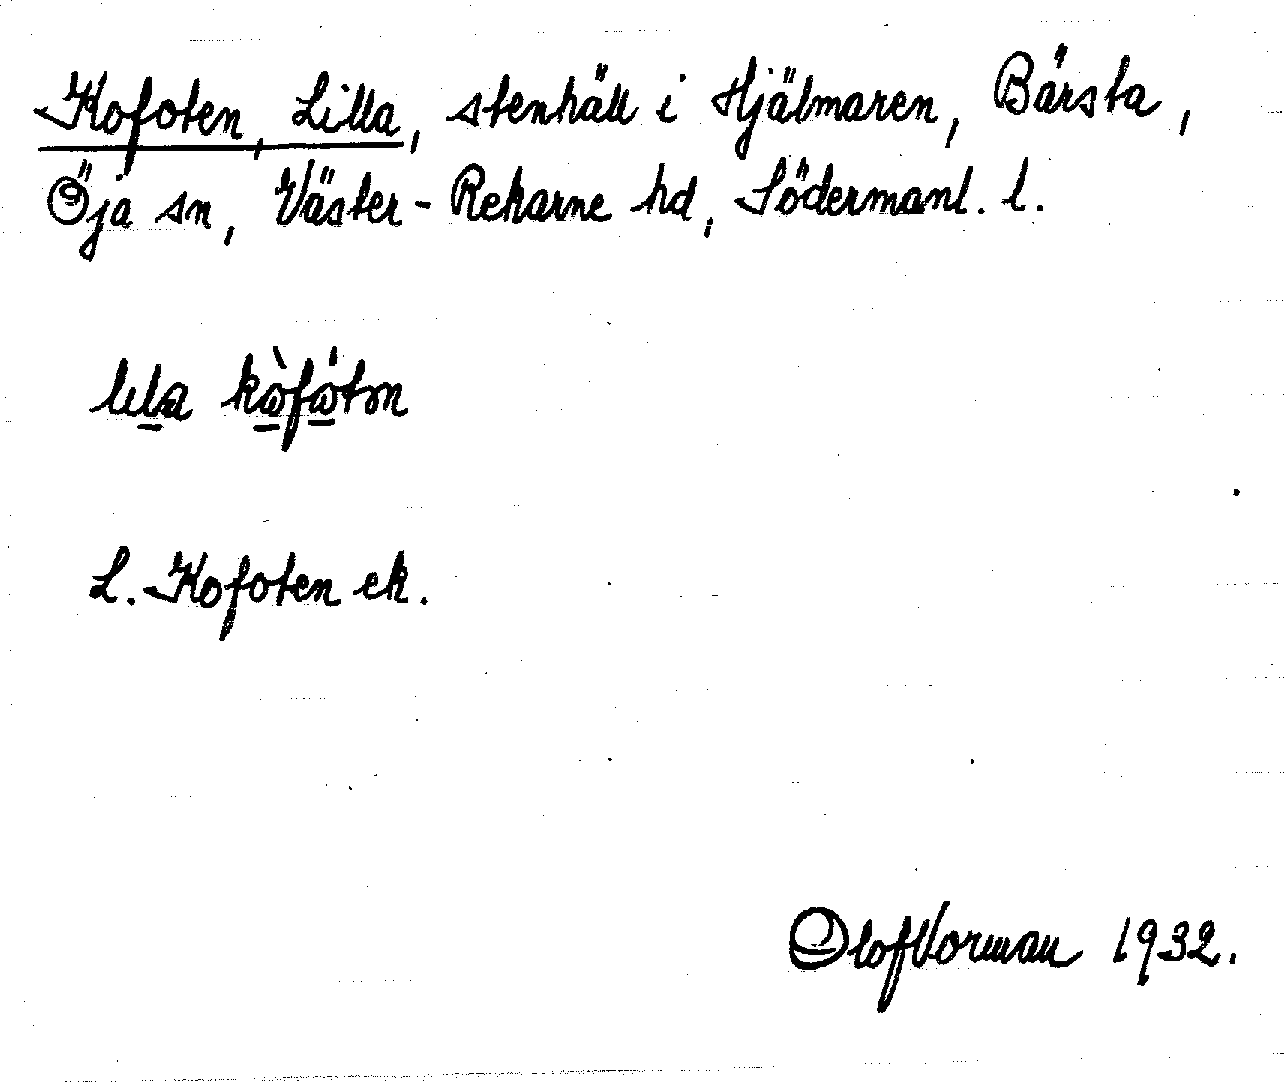 Kofoten, Lilla, stenhäll i Hjälmaren, Bärsta,
Öja sn, Väster-Rekarne hd, Södermanl. l.
L. Kofoten ek.
Olof Vorman 1932.